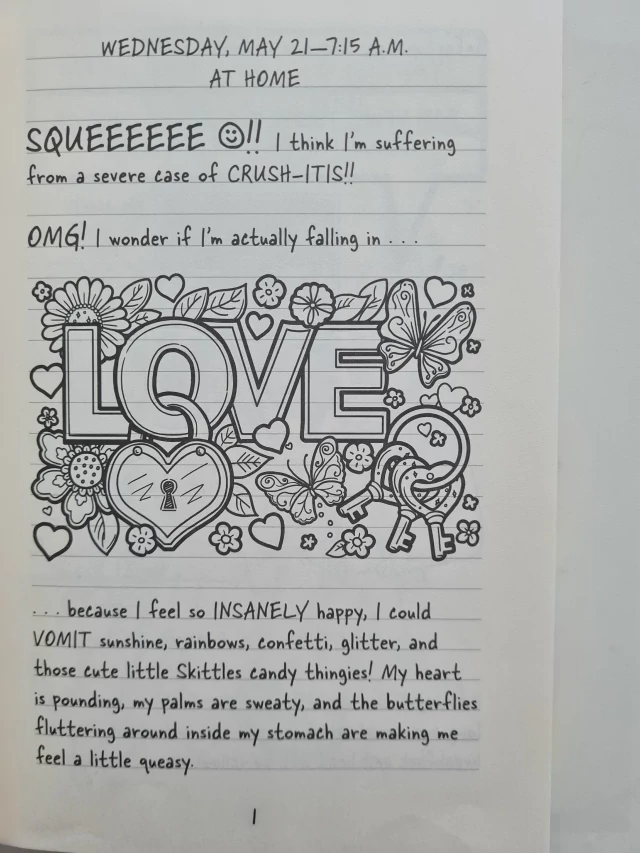 WEDNESDAY, MAY 21—7:15 A.M.
AT HOME
SQUEEEEEE ☺!! I think I'm suffering
from a severe case of CRUSH-ITIS!!
OMG! I wonder if I'm actually falling in . . .
LOVE
. . . because I feel so INSANELY happy, I could
VOMIT sunshine, rainbows, confetti, glitter, and
those cute little Skittles candy thingies! My heart
is pounding, my palms are sweaty, and the butterflies
fluttering around inside my stomach are making me
feel a little queasy.
1